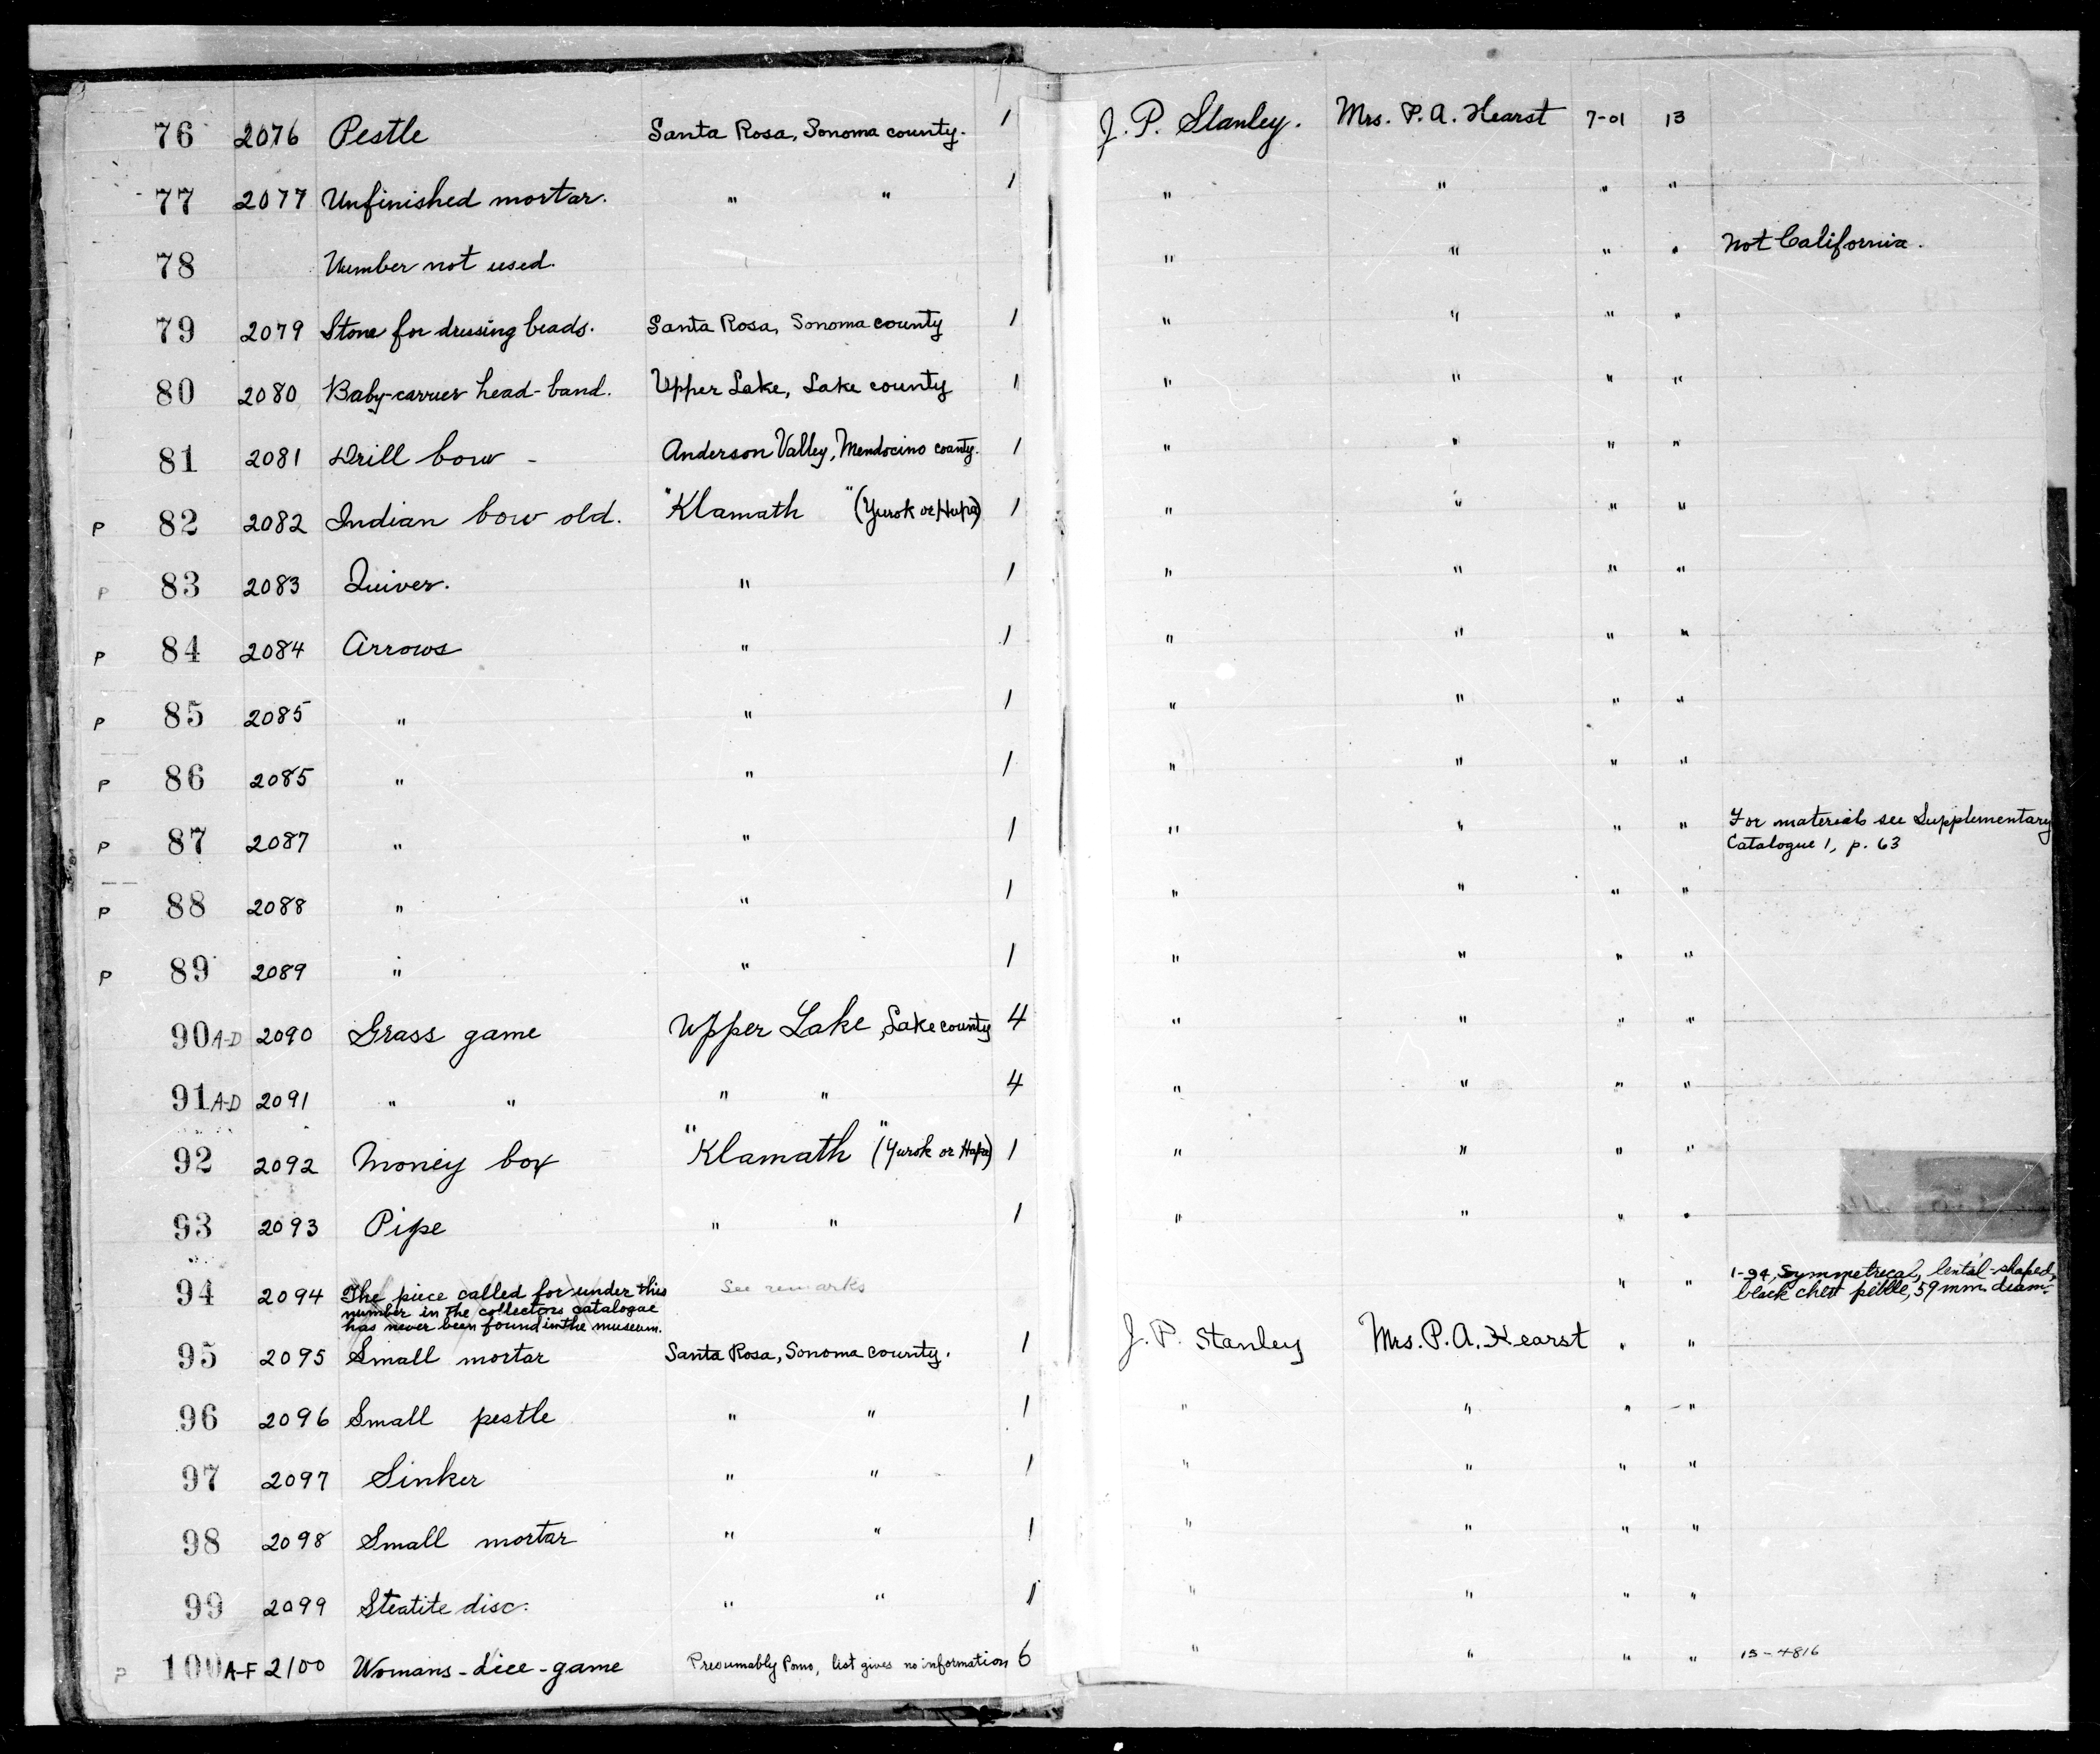 76 2076 Pestle Santa Rosa, Sonoma county. 1 J. P. Stanley. Mrs. P. A. Hearst 7-01 13
77 2077 Unfinished mortar. " " 1 " " " "
78 Number not used. " " " " Not California.
79 2079 Stone for dressing beads. Santa Rosa, Sonoma county 1 " " " "
80 2080 Baby-carrier head-band. Upper Lake, Lake county 1 " " " "
81 2081 Drill bow - Anderson Valley, Mendocino county. 1 " " " "
P 82 2082 Indian bow old. "Klamath" (Yurok or Hupa) 1 " " " "
P 83 2083 Quiver. " 1 " " " "
P 84 2084 Arrows " 1 " " " "
P 85 2085 " " 1 " " " "
P 86 2085 " " 1 " " " "
P 87 2087 " " 1 " " " " For materials see Supplementary
Catalogue 1, p. 63
P 88 2088 " " 1 " " " "
P 89 2089 " " 1 " " " "
90 A-D 2090 Grass game Upper Lake, Lake county 4 " " " "
91 A-D 2091 " " " " 4 " " " "
92 2092 Money box "Klamath" (Yurok or Hupa) 1 " " " "
93 2093 Pipe " " 1 " " " "
94 2094 The piece called for under this See remarks " " 1-94, Symmetrical, lental-shaped,
number in the collectors catalogue black chert pebble, 59 mm. diam.
has never been found in the museum.
95 2095 Small mortar Santa Rosa, Sonoma county. 1 J. P. Stanley Mrs. P. A. Hearst " "
96 2096 Small pestle " " 1 " " " "
97 2097 Sinker " " 1 " " " "
98 2098 Small mortar " " 1 " " " "
99 2099 Steatite disc. " " 1 " " " "
P 100 A-F 2100 Womans-dice-game Presumably Pomo, list gives no information 6 " " " " 15-4816